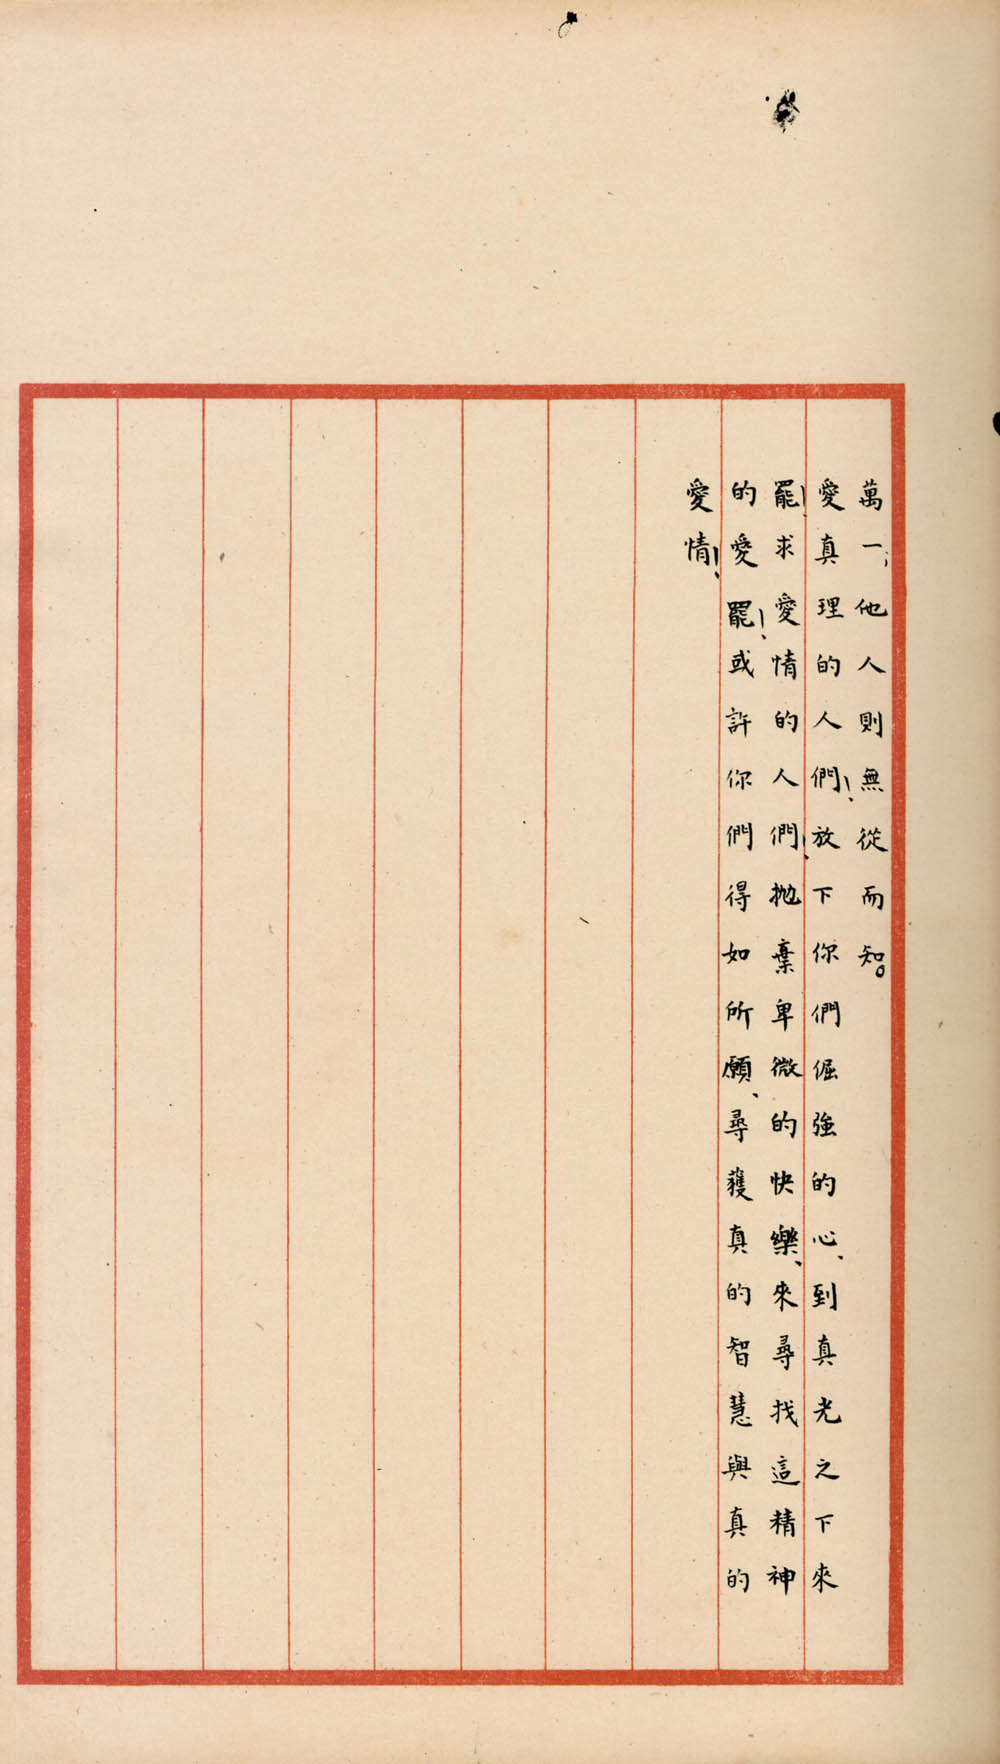 萬一;他人則無從而知。
愛真理的人們!放下你們倔強的心、到真光之下來
罷!求愛情的人們!拋棄卑微的快樂、來尋找這精神
的愛罷!或許你們得如所願、尋獲真的智慧與真的
愛情!